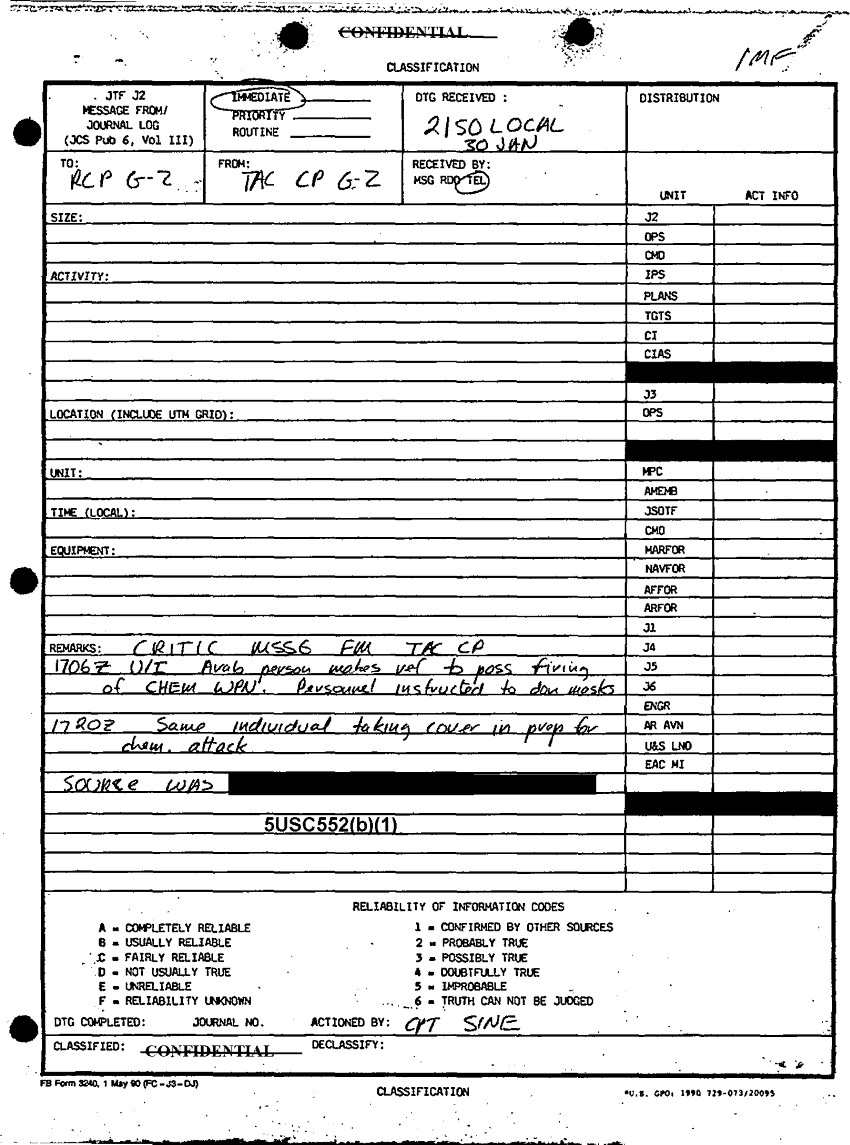 CONFIDENTIAL
CLASSIFICATION
IMF
JTF J2
MESSAGE FROM/
JOURNAL LOG
(JCS Pub 6, Vol III)
IMMEDIATE
PRIORITY
ROUTINE
DTG RECEIVED :
2150 LOCAL
30 JAN
DISTRIBUTION
TO:
RCP G-2
FROM:
TAC CP G-2
RECEIVED BY:
MSG RDO TEL
UNIT ACT INFO
SIZE:
J2
OPS
CMD
ACTIVITY:
IPS
PLANS
TGTS
CI
CIAS
J3
LOCATION (INCLUDE UTM GRID):
OPS
UNIT:
MPC
AMEMB
TIME (LOCAL):
JSOTF
CMO
EQUIPMENT:
MARFOR
NAVFOR
AFFOR
ARFOR
J1
REMARKS: CRITIC MSSG FM TAC CP
J4
1706Z U/I Arab person makes ref to poss firing
J5
of CHEM WPN'. Personnel instructed to don masks
J6
ENGR
1720Z Same individual taking cover in prep for
AR AVN
chem. attack
U&S LNO
EAC MI
SOURCE WAS
5USC552(b)(1)
RELIABILITY OF INFORMATION CODES
A = COMPLETELY RELIABLE
B = USUALLY RELIABLE
C = FAIRLY RELIABLE
D = NOT USUALLY TRUE
E = UNRELIABLE
F = RELIABILITY UNKNOWN
1 = CONFIRMED BY OTHER SOURCES
2 = PROBABLY TRUE
3 = POSSIBLY TRUE
4 = DOUBTFULLY TRUE
5 = IMPROBABLE
6 = TRUTH CAN NOT BE JUDGED
DTG COMPLETED: JOURNAL NO. ACTIONED BY: CPT SINE
CLASSIFIED: CONFIDENTIAL DECLASSIFY:
FB Form 3240, 1 May 90 (FC-J3-DJ)
CLASSIFICATION
*U.S. GPO: 1990 729-073/20095